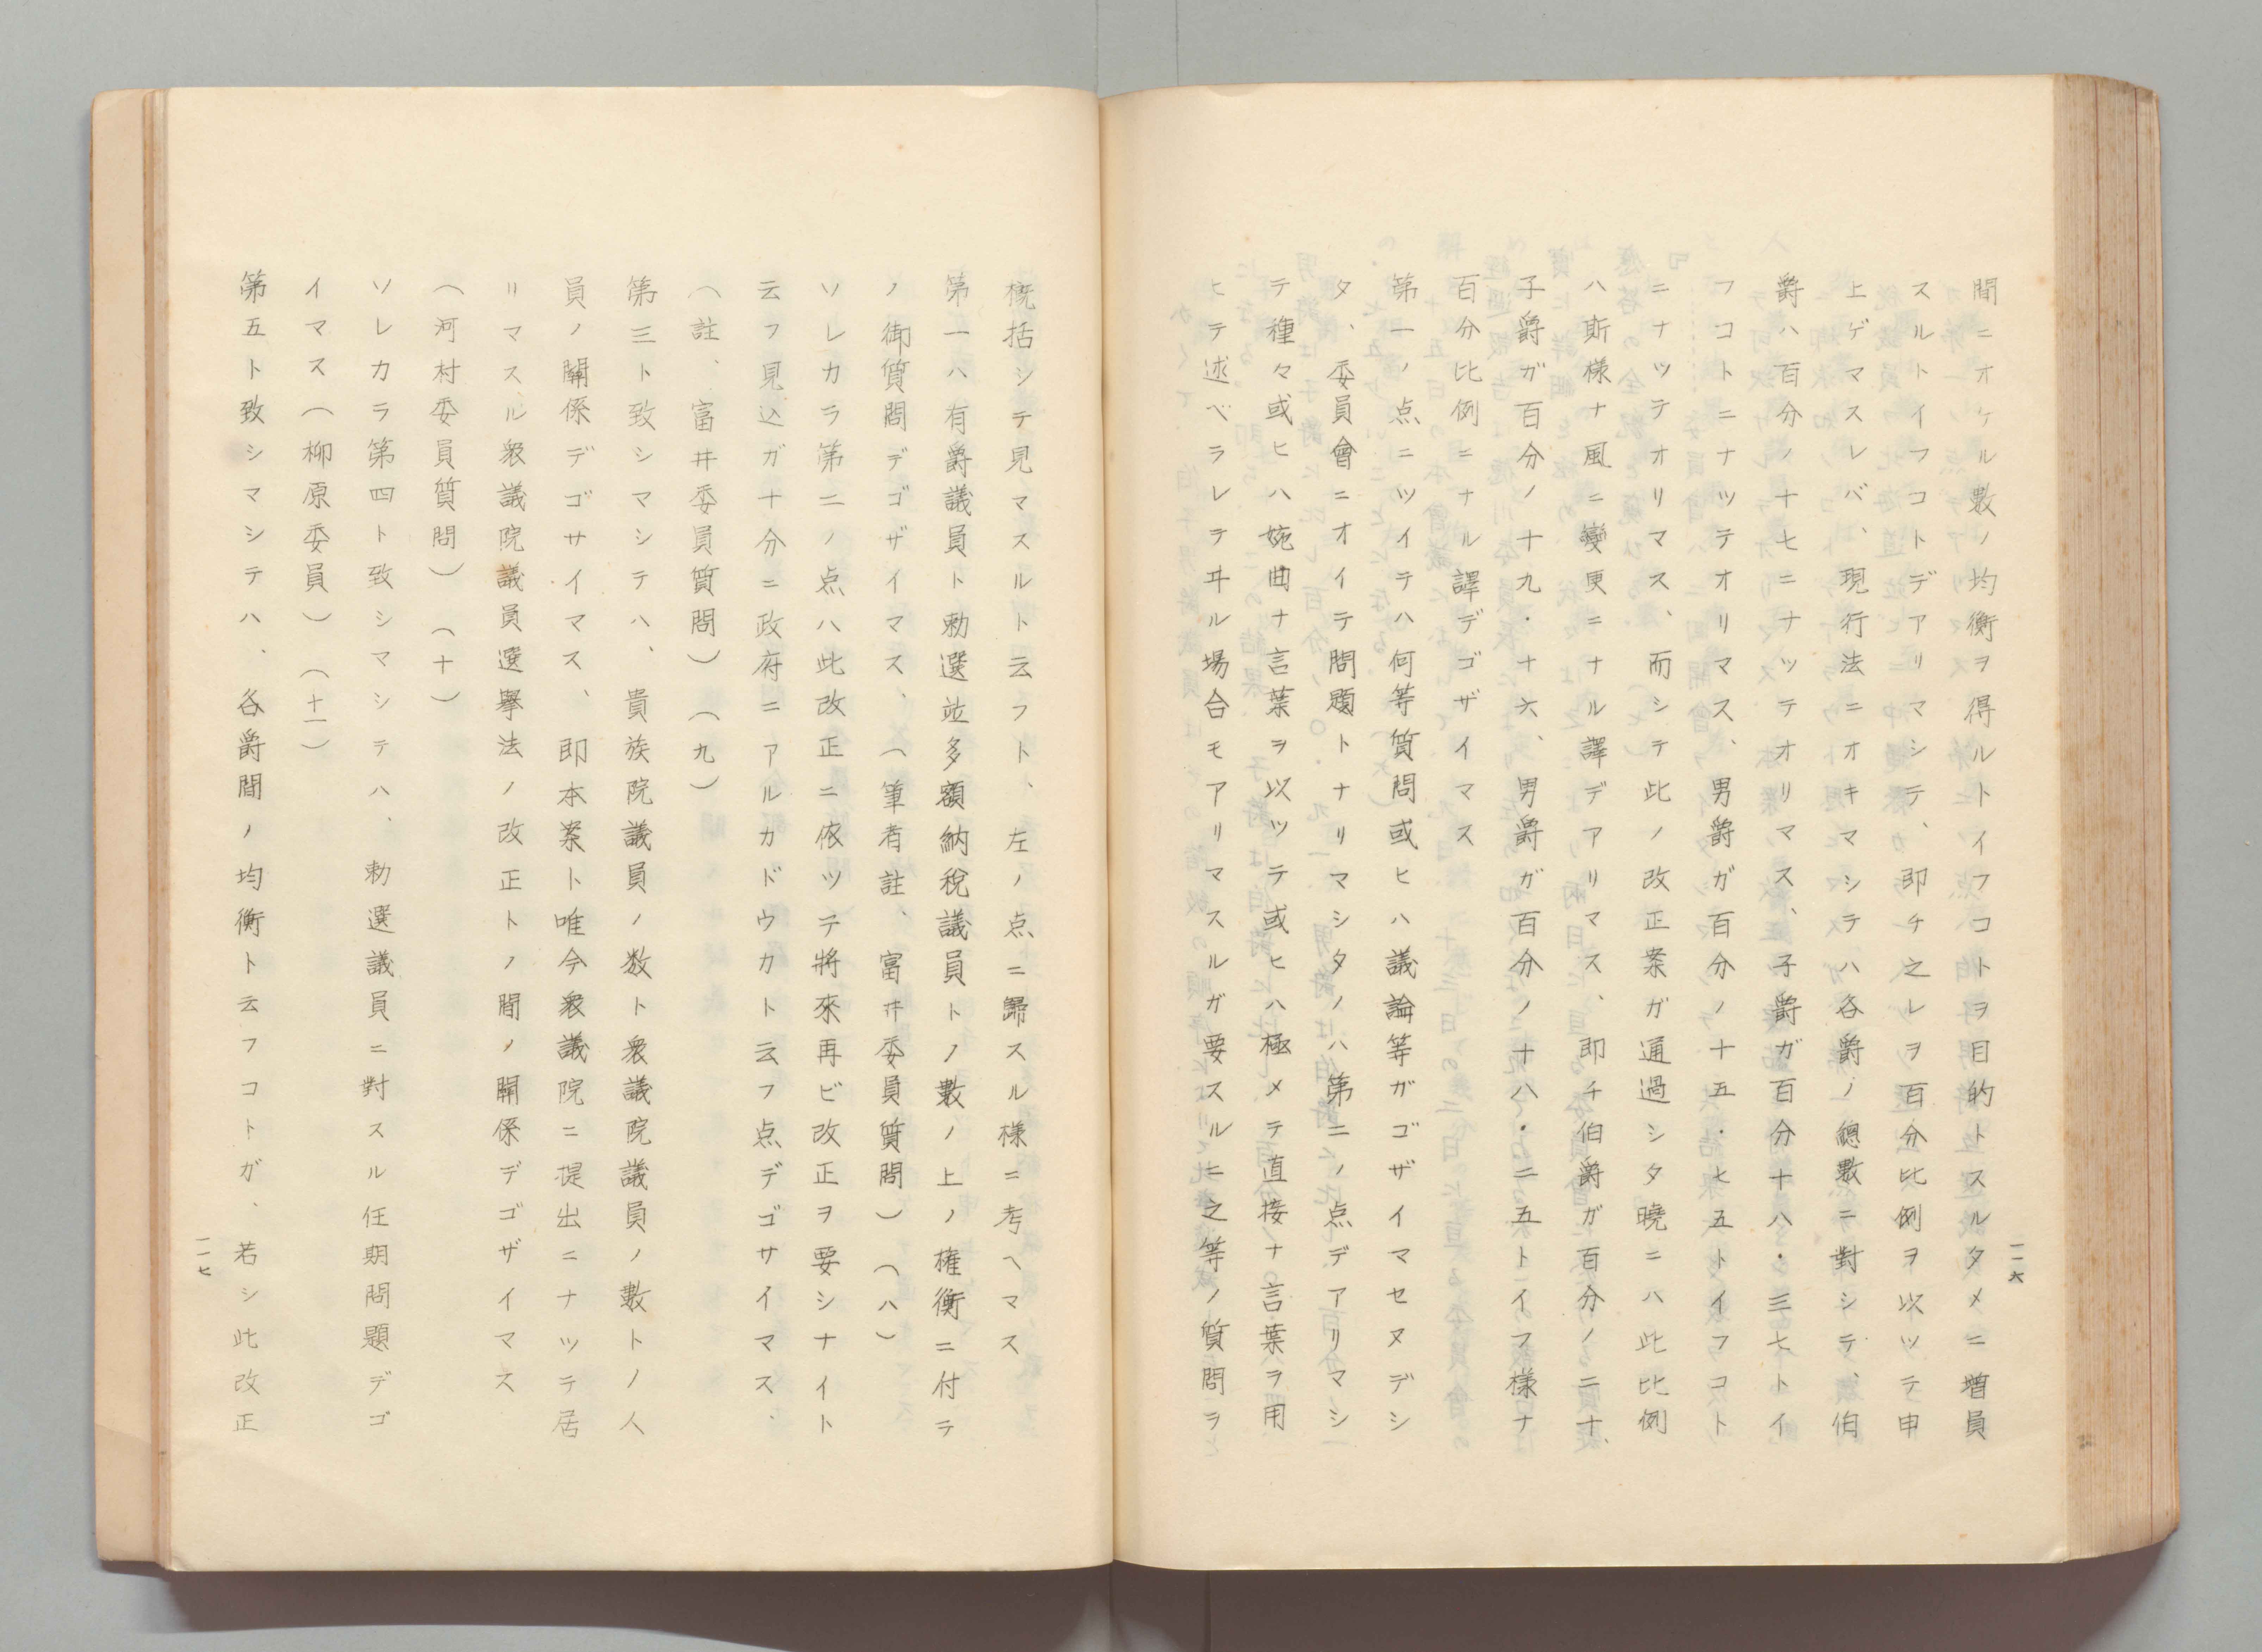 間ニオケル數ノ均衡ヲ得ルトイフコトヲ目的トスルタメニ増員
スルトイフコトデアリマシテ、即チ之レヲ百分比例ヲ以ツテ申
上ゲマスレバ、現行法ニオキマシテハ各爵ノ總數ニ對シテ、伯
爵ハ百分ノ十七ニナツテオリマス、子爵ガ百分十八・三七トイ
フコトニナツテオリマス、男爵ガ百分ノ十五・七五トイフコト
ニナツテオリマス、而シテ此ノ改正案ガ通過シタ曉ニハ此比例
ハ斯様ナ風ニ變更ニナル譯デアリマス、即チ伯爵ガ百分ノ二十、
子爵ガ百分ノ十九・十六、男爵ガ百分ノ十八・二五トイフ様ナ
百分比例ニナル譯デゴザイマス
第一ノ点ニツイテハ何等質問或ヒハ議論等ガゴザイマセヌデシ
タ、委員會ニオイテ問題トナリマシタノハ第二ノ点デアリマシ
テ種々或ヒハ婉曲ナ言葉ヲ以ツテ或ヒハ極メテ直接ナ言葉ヲ用
ヒテ述ベラレテヰル場合モアリマスルガ要スルニ之等ノ質問ヲ
一一六
概括シテ見マスルト云フト、左ノ点ニ歸スル様ニ考ヘマス
第一ハ有爵議員ト勅選並多額納税議員トノ數ノ上ノ權衡ニ付テ
ノ御質問デゴザイマス、（筆者註、富井委員質問）（八）
ソレカラ第二ノ点ハ此改正ニ依ツテ將來再ビ改正ヲ要シナイト
云フ見込ガ十分ニ政府ニアルカドウカト云フ点デゴサイマス、
（註、富井委員質問）（九）
第三ト致シマシテハ、貴族院議員ノ数ト衆議院議員ノ數トノ人
員ノ關係デゴサイマス、即本案ト唯今衆議院ニ提出ニナツテ居
リマスル衆議院議員選擧法ノ改正トノ間ノ關係デゴザイマス
（河村委員質問）（十）
ソレカラ第四ト致シマシテハ、勅選議員ニ對スル任期問題デゴ
イマス（柳原委員）（十一）
第五ト致シマシテハ、各爵間ノ均衡ト云フコトガ、若シ此改正
一一七